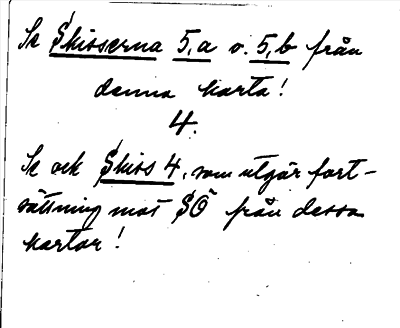 Se Skisserna 5,a o. 5,b från
denna karta!
4.
Se ock Skiss 4, som utgör fort-
sättning mot SÖ från dessa
kartor!